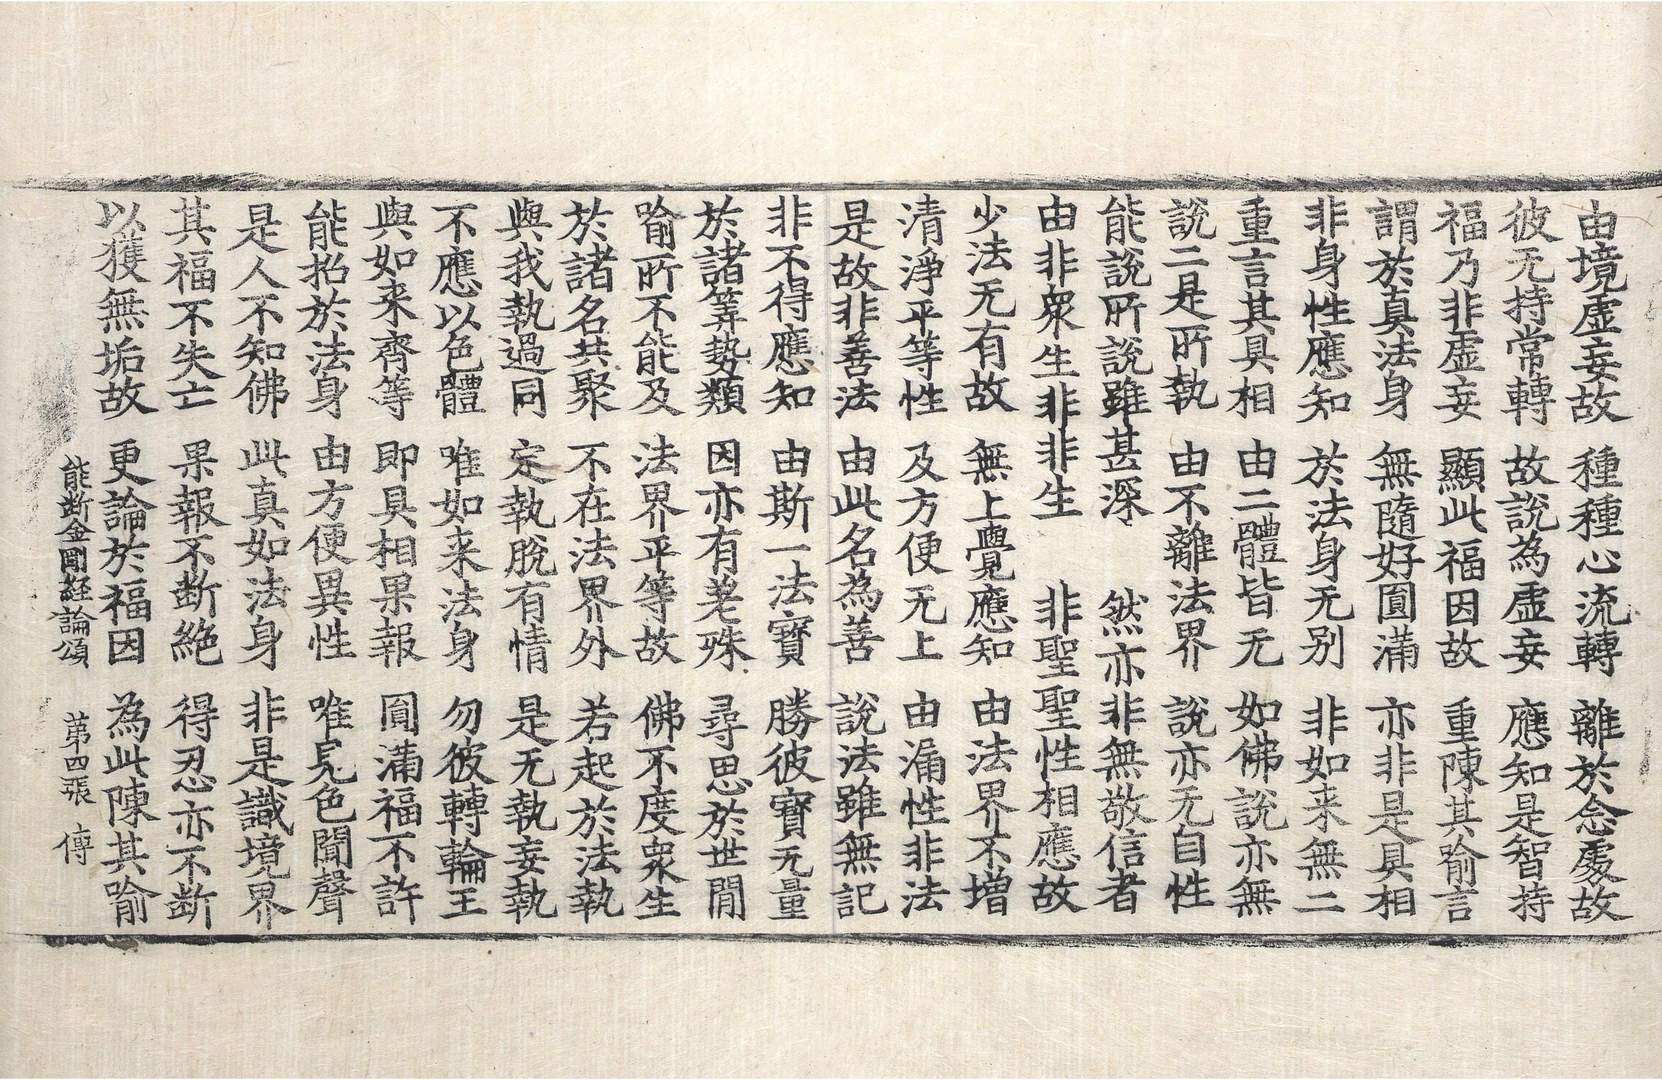 由境虛妄故　種種心流轉　離於念處故
彼无持常轉　故說為虛妄　應知是智持
福乃非虛妄　顯此福因故　重陳其喻言
謂於真法身　無隨好圓滿　亦非是具相
非身性應知　於法身无别　非如来無二
重言其具相　由二體皆无　如佛說亦無
說二是所執　由不離法界　說亦无自性
能說所說雖甚深　然亦非無敬信者
由非衆生非非生　非聖聖性相應故
少法无有故　無上覺應知　由法界不增
清淨平等性　及方便无上　由漏性非法
是故非善法　由此名為善　說法雖無記
非不得應知　由斯一法寶　勝彼寶无量
於諸筭勢類　因亦有差殊　尋思於世間
喻所不能及　法界平等故　佛不度衆生
於諸名共聚　不在法界外　若起於法執
與我執過同　定執脫有情　是无執妄執
不應以色體　唯如来法身　勿彼轉輪王
與如来齊等　即具相果報　圓滿福不許
能招於法身　由方便異性　唯見色聞聲
是人不知佛　此真如法身　非是識境界
其福不失亡　果報不断絶　得忍亦不断
以獲無垢故　更論於福因　為此陳其喻
能断金剛経論頌　第四張　傳